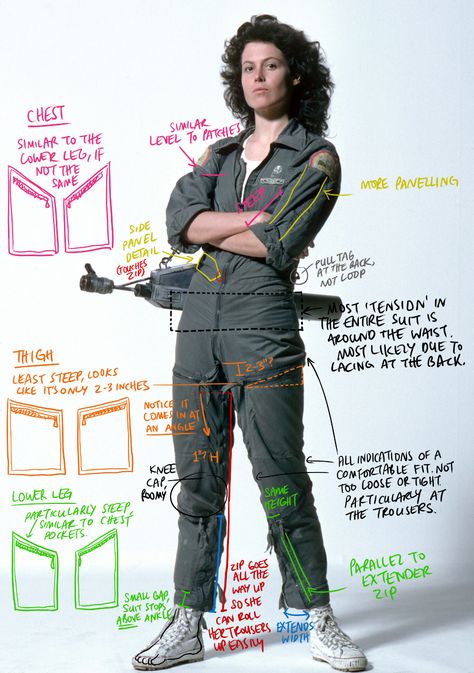 CHEST
SIMILAR TO THE
LOWER LEG, IF
NOT THE
SAME
SIMILAR
LEVEL TO PATCHES
DEEP
MORE PANELLING
SIDE
PANEL
DETAIL
(TOUCHES
ZIP)
PULL TAG
AT THE BACK,
NOT LOOP
MOST 'TENSION' IN
THE ENTIRE SUIT IS
AROUND THE WAIST.
MOST LIKELY DUE TO
LACING AT THE BACK.
THIGH
LEAST STEEP, LOOKS
LIKE IT'S ONLY 2-3 INCHES
2-3"?
NOTICE IT
COMES IN AT
AN ANGLE
1"?
KNEE
CAP,
ROOMY
ALL INDICATIONS OF A
COMFORTABLE FIT. NOT
TOO LOOSE OR TIGHT
PARTICULARLY AT
THE TROUSERS.
LOWER LEG
PARTICULARLY STEEP,
SIMILAR TO CHEST
POCKETS.
SAME
HEIGHT
SMALL GAP,
SUIT STOPS
ABOVE ANKLE
ZIP GOES
ALL THE
WAY UP
SO SHE
CAN ROLL
HER TROUSERS
UP EASILY
EXTENDS
WIDTH
PARALLEL TO
EXTENDER
ZIP